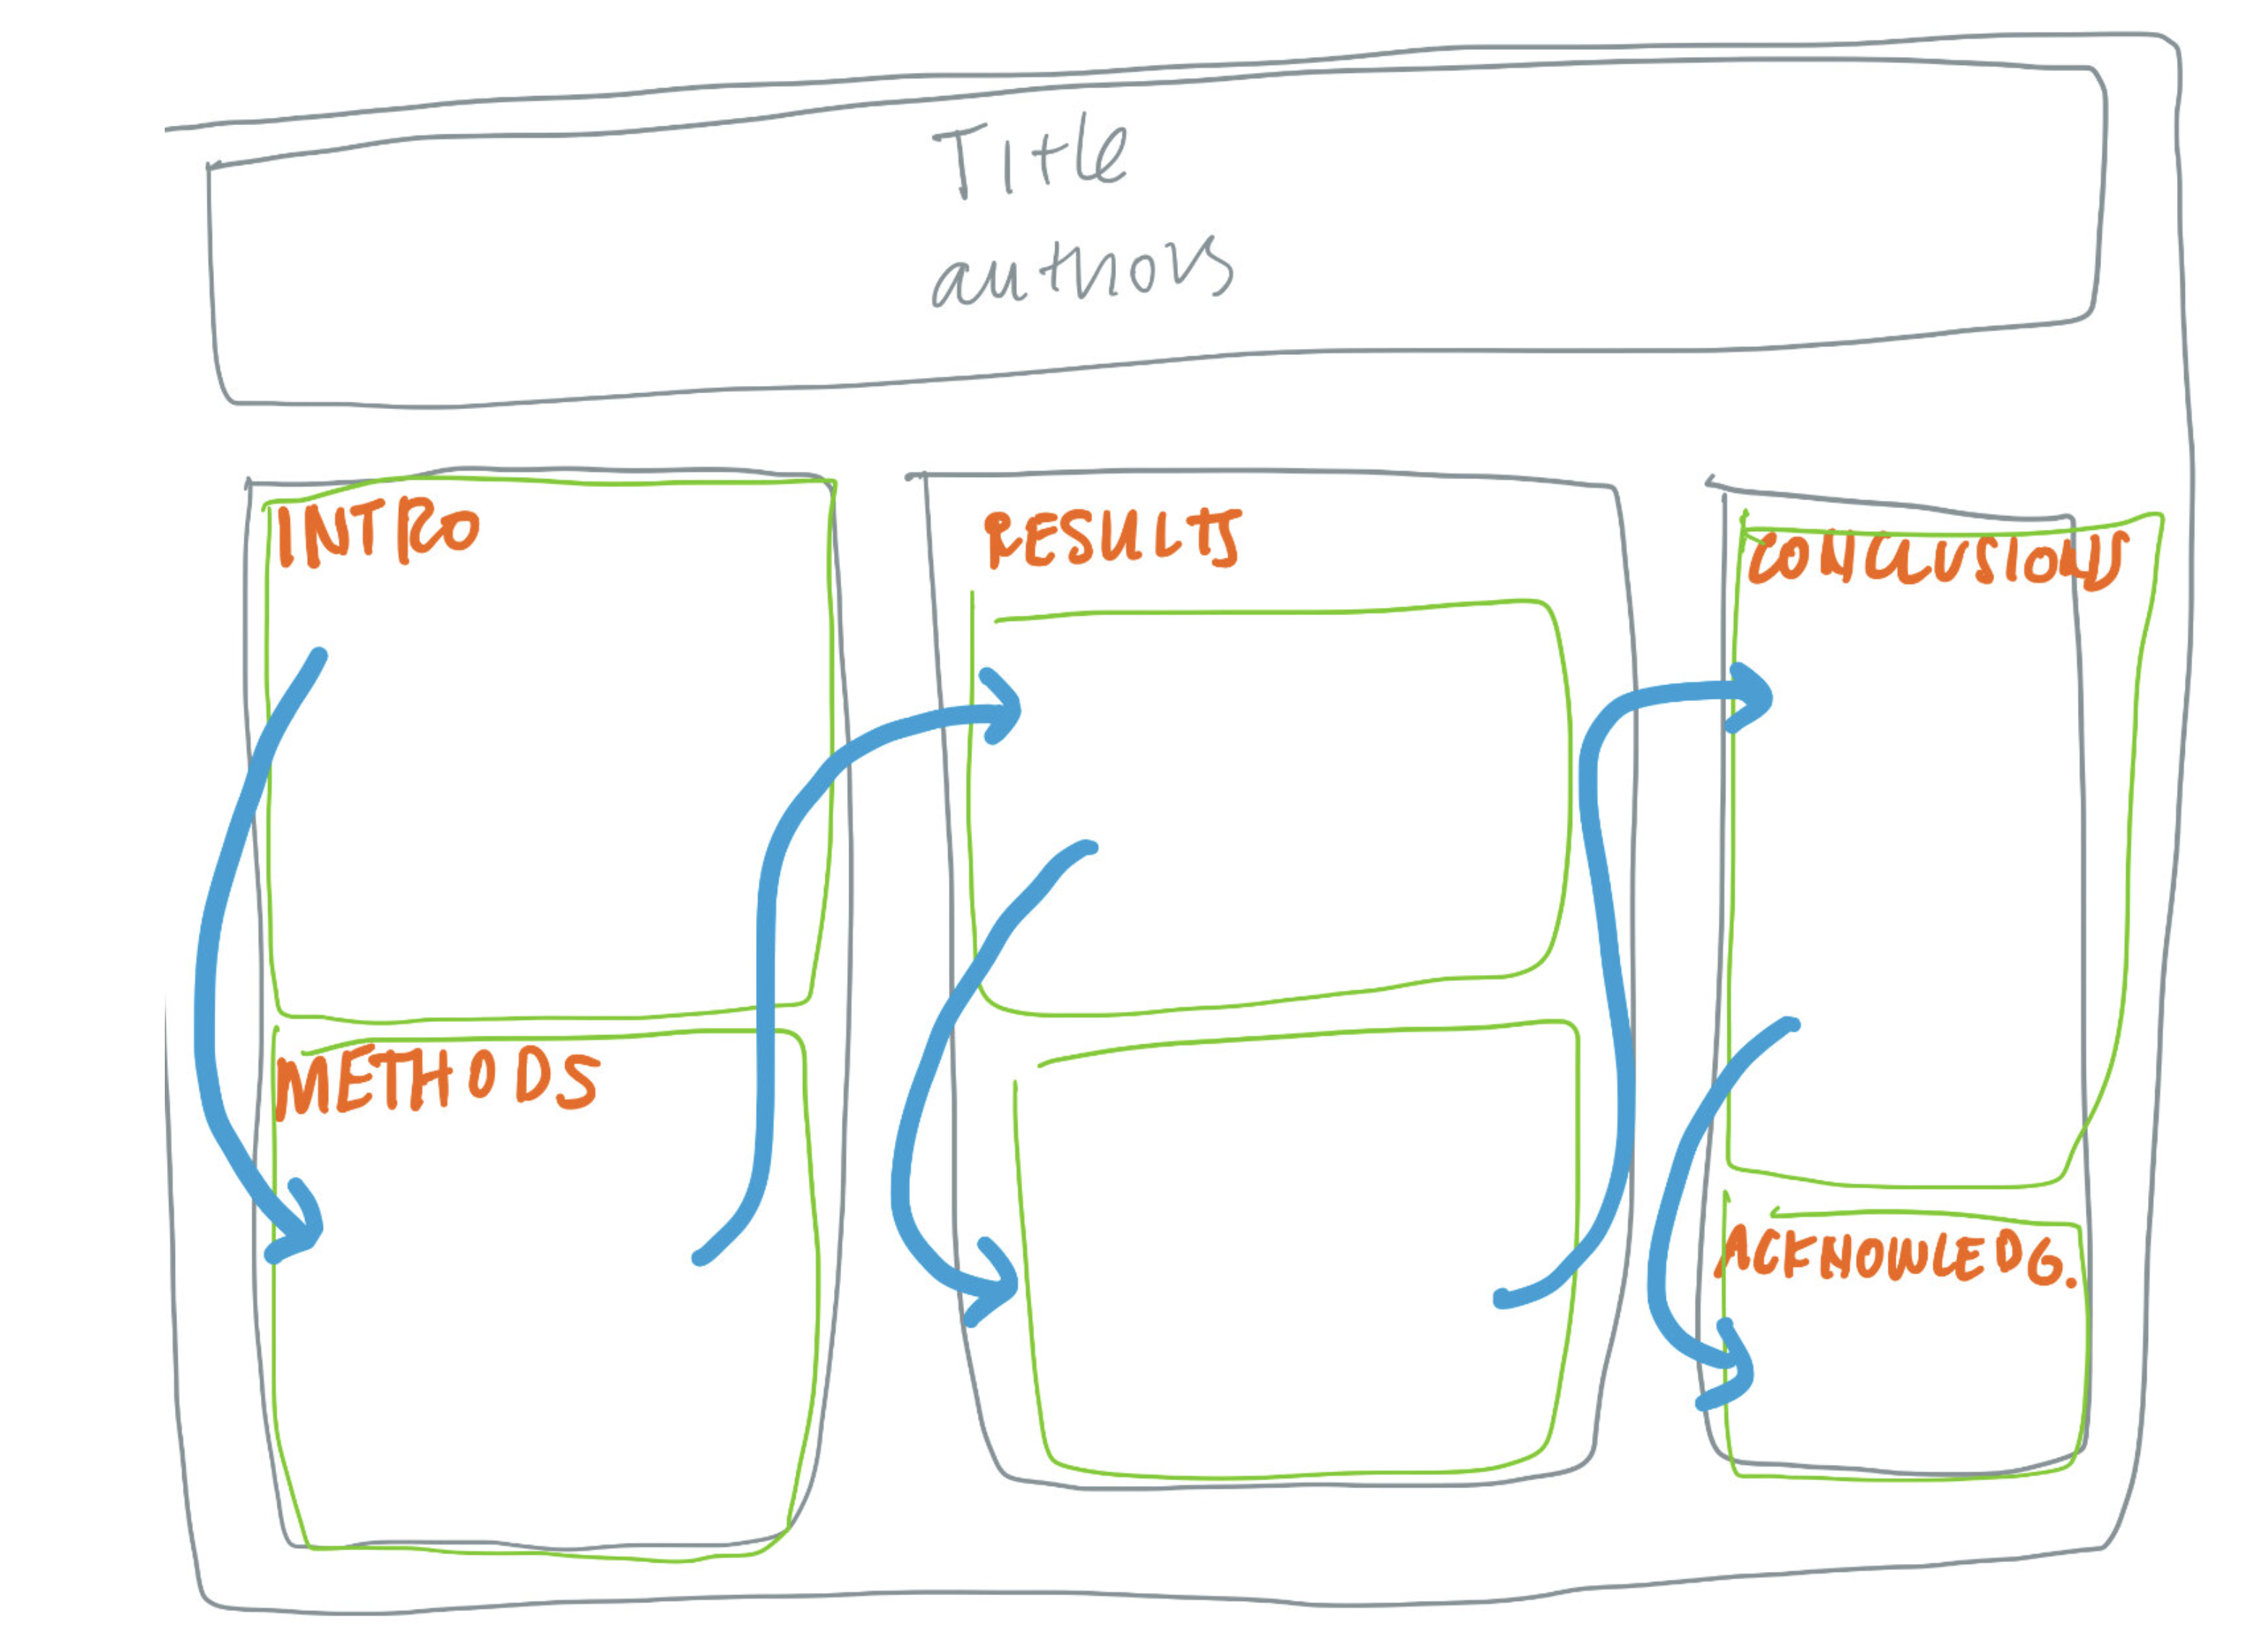 Title
authors
INTRO
METHODS
RESULTS
CONCLUSIONS
ACKNOWLEDG.